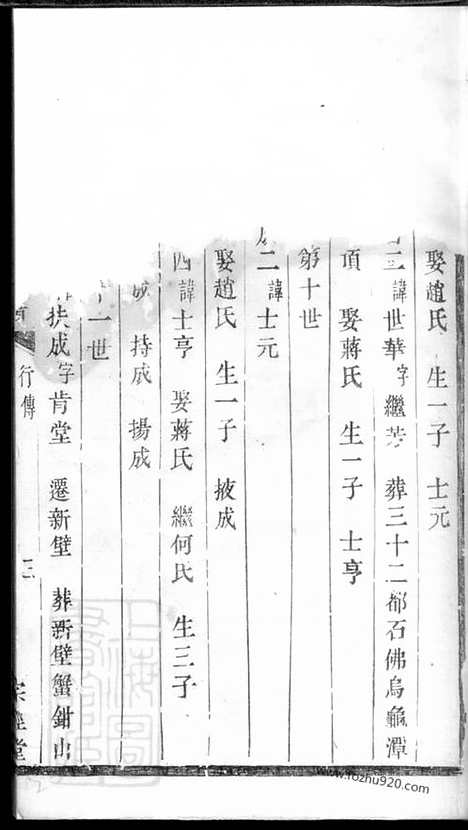 娶趙氏 生一子 士元
三諱世華字繼芳 葬三十二都石佛烏龜潭
項 娶蔣氏 生一子 士亨
第十世
二諱士元
娶趙氏 生一子 掖成
四諱士亨 娶蔣氏 繼何氏 生三子
成 持成 揚成
十一世
扶成字肯堂 遷新壁 葬新壁蟹鉗山
行傳 三
上海圖
www.fozhu920.com